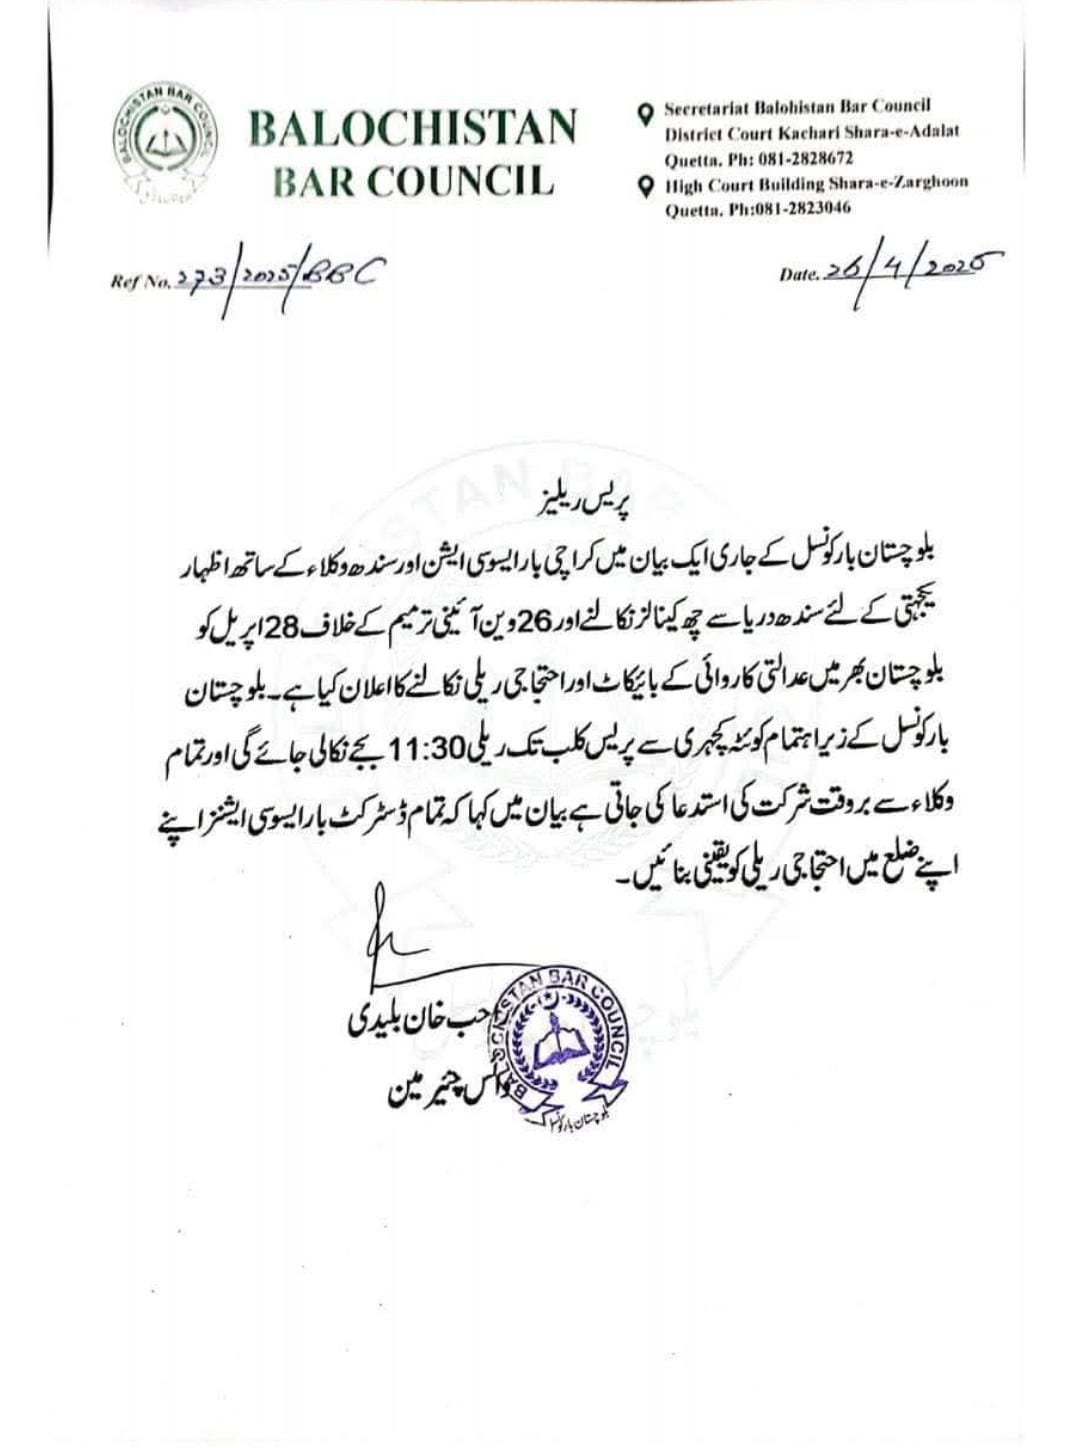 BALOCHISTAN BAR COUNCIL
BALOCHISTAN
BAR COUNCIL
Secretariat Balohistan Bar Council
District Court Kachari Shara-e-Adalat
Quetta. Ph: 081-2828672
High Court Building Shara-e-Zarghoon
Quetta. Ph:081-2823046
Ref No. 273/2025/BBC
Date. 26/4/2025
پریس ریلیز
بلوچستان بارکونسل کے جاری ایک بیان میں کراچی بارایسوسی ایشن اور سندھ وکلاء کے ساتھ اظہار
یکجہتی کے لئے سندھ دریا سے چھ کینالز نکالنے اور 26وین آئینی ترمیم کے خلاف 28 اپریل کو
بلوچستان بھر میں عدالتی کاروائی کے بائیکاٹ اور احتجاجی ریلی نکالنے کا اعلان کیا ہے۔ بلوچستان
بارکونسل کے زیر اہتمام کوئٹہ کچہری سے پریس کلب تک ریلی 11:30 بجے نکالی جائے گی اور تمام
وکلاء سے بروقت شرکت کی استدعا کی جاتی ہے بیان میں کہا کہ تمام ڈسٹرکٹ بارایسوسی ایشنز اپنے
اپنے ضلع میں احتجاجی ریلی کو یقینی بنائیں۔
خان بلیدی
وائس چئیرمین
BALOCHISTAN BAR COUNCIL
بلوچستان بارکونسل